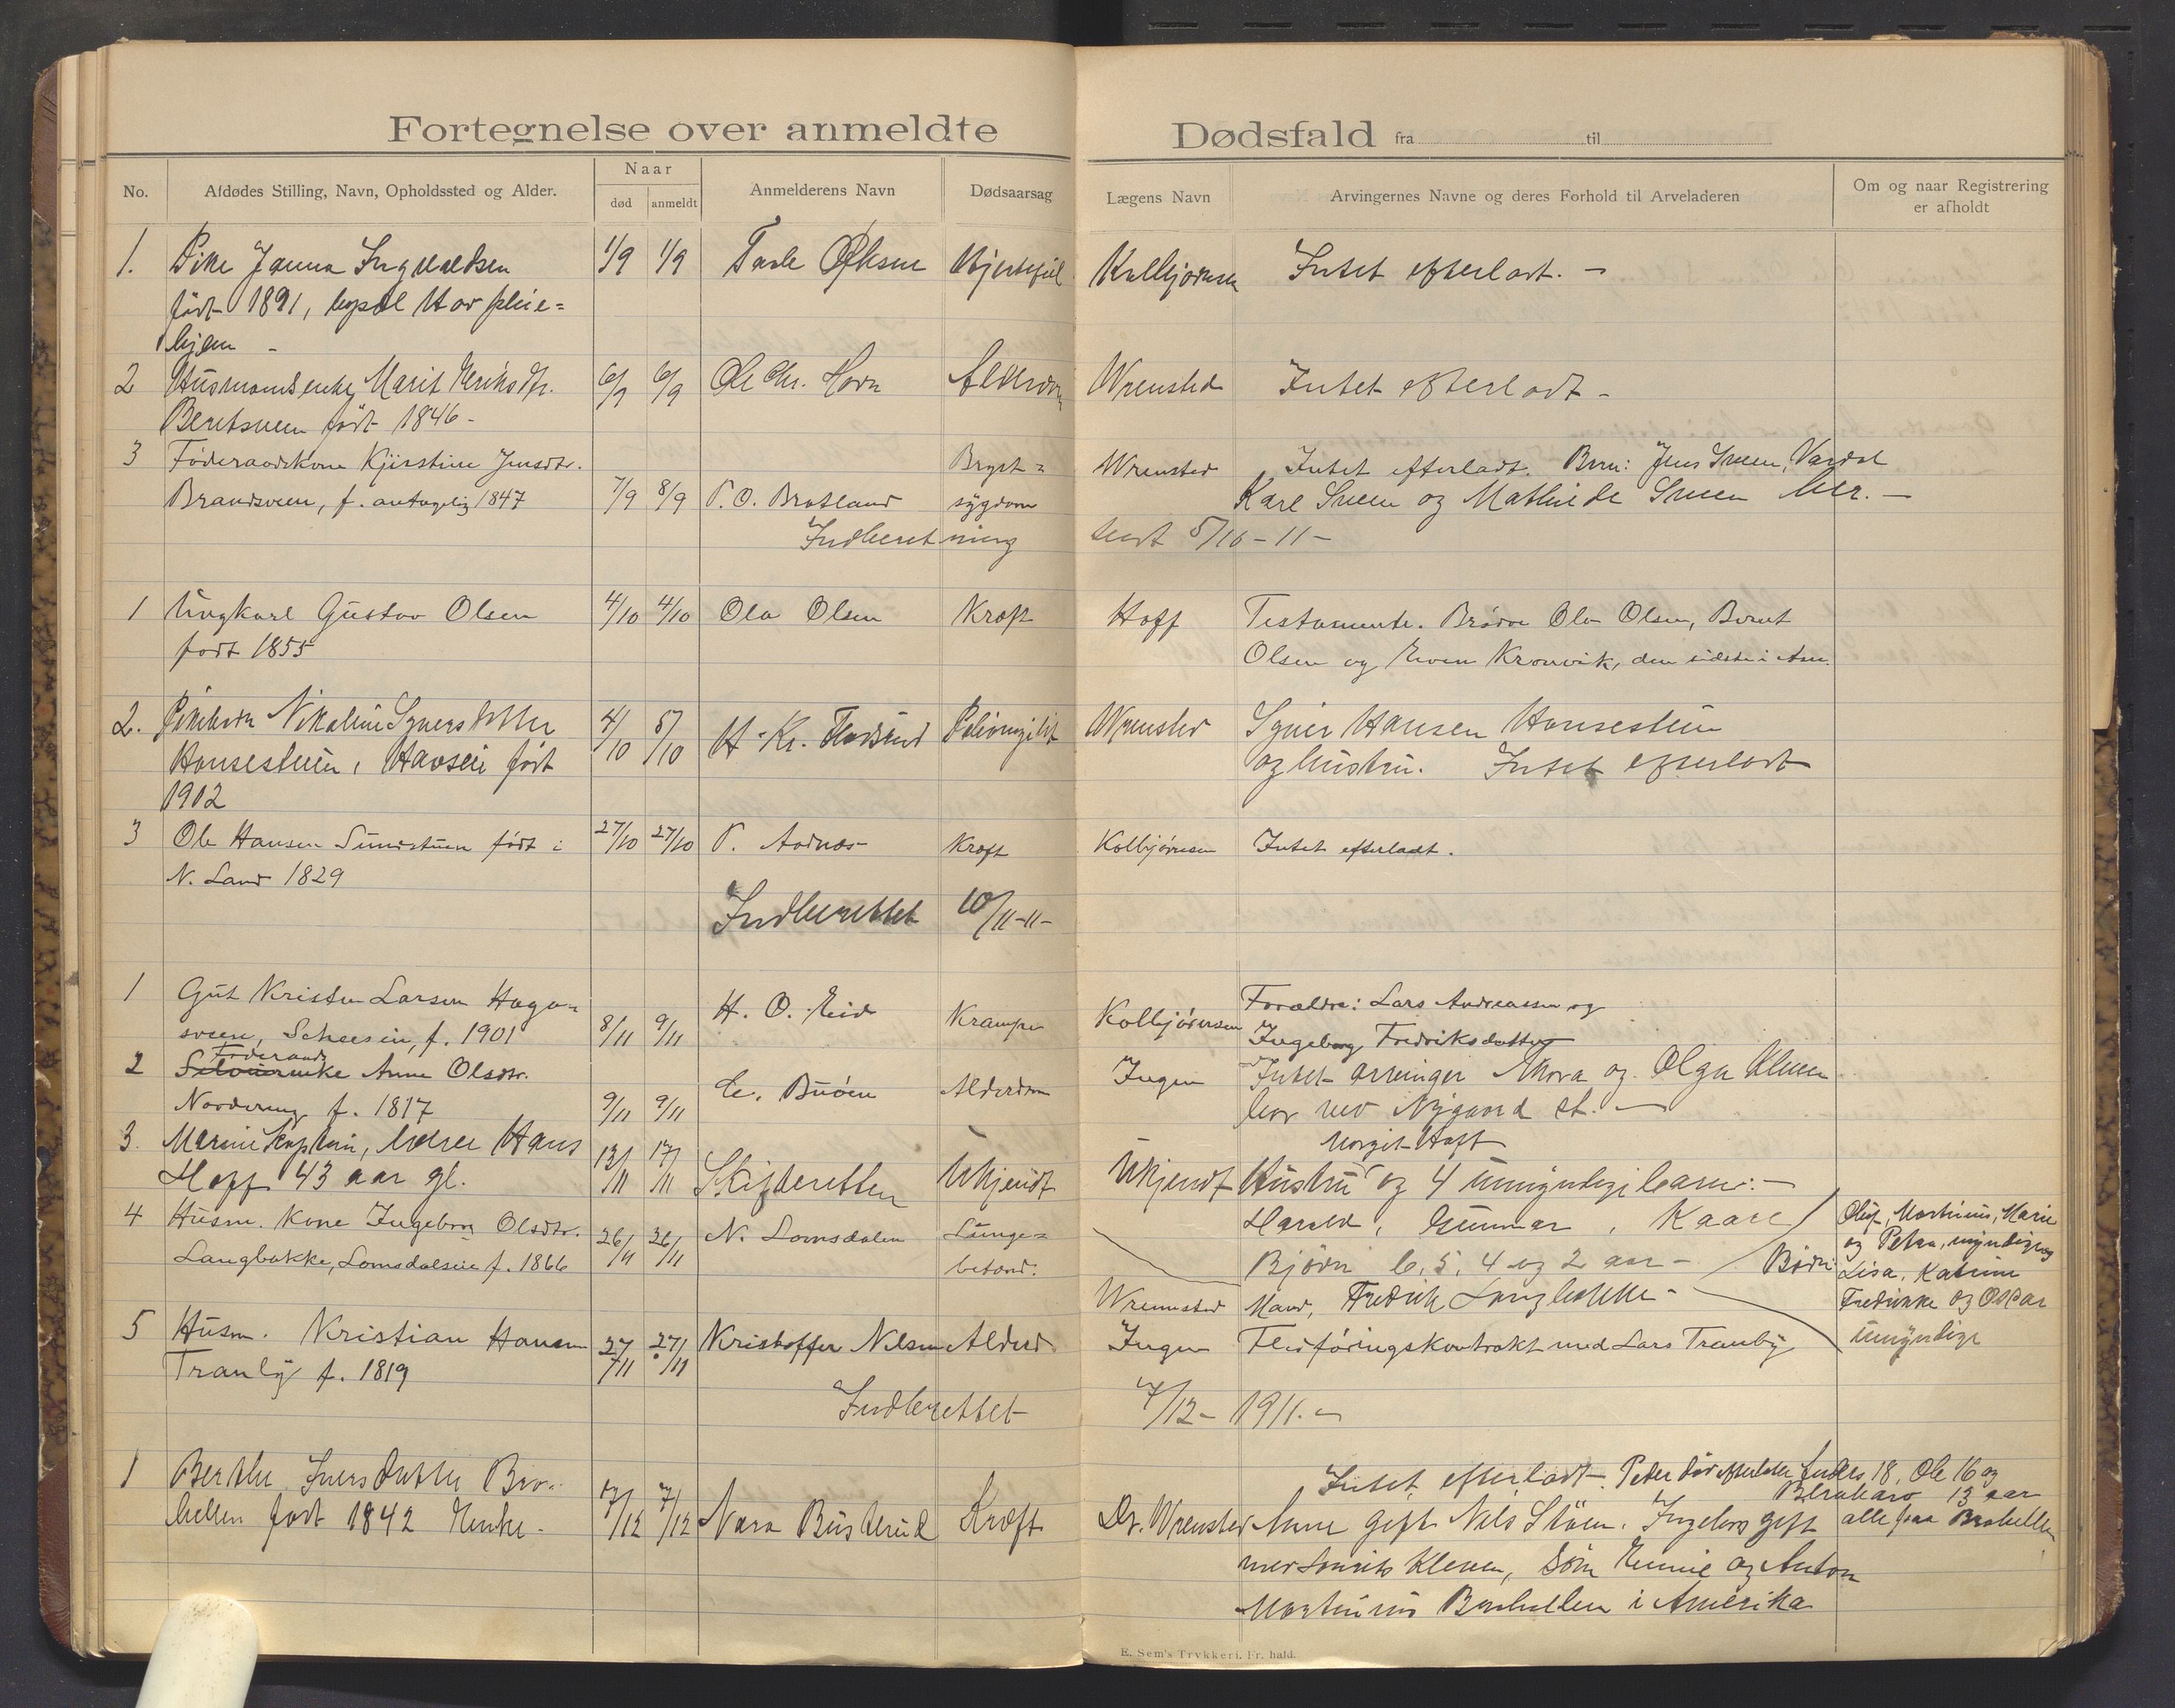 Fortegnelse over anmeldte Dødsfald fra til
No.
Afdødes Stilling, Navn, Opholdssted og Alder.
Naar
død
anmeldt
Anmelderens Navn
Dødsaarsag
Lægens Navn
Arvingernes Navne og deres Forhold til Arveladeren
Om og naar Registrering
er afholdt
1. Pike Janna Ingvaldsen 1/9 1/9 Tarle Hjertefeil Kolbjørnsen Intet efterladt. -
født 1891, Hov pleie=
hjem -
2 Husmandsenke Marit Eriksdtr. 6/9 6/9 Ole Chr. Hovn Alderdom Wrensted Intet efterladt -
Beritsveen født 1846 -
3 Føderaadskone Kjerstine Jensdtr. Bryst= Wrensted Intet efterladt. Børn: Jens Sveen, Vardal
Brandsveen, f. antagelig 1847 7/9 8/9 P. O. Bratland sygdom Karl Sveen og Mathilde Sveen her. -
Indberetning sendt 5/10 - 11 -
1 Ungkarl Gustav Olsen 4/10 4/10 Ola Olsen Kræft Hoff Testamente. Brødre Ole Olsen, Bernt
født 1855 Olsen og Even Kronvik, den sidste i Am.
2. Pikebarn Nikoline Synersdatter 4/10 5/10 H. Kr. Fladsrud Wrensted Syver Hansen Honsestuen
Honsestuen, født og hustru. Intet efterladt
1902
3 Ole Hansen Sundstuen født i 27/10 27/10 P. Aadnæs Kræft Kolbjørnsen Intet efterladt.
N. Land 1829
Indberettet 10/11 - 11 -
1 Gut Kristen Larsen Hagen= H. O. Eid Krampe Kolbjørnsen Forældre: Lars Andreassen og
sveen, f. 1901 8/11 9/11 Ingeborg Fredriksdatter
Føderaads
2 enke Anne Olsdtr. E. Buøen Alderdom Ingen Intet arvinger Thora og Olga Kleven
Nordeng f. 1817 9/11 9/11 bor ved Nygaard st. -
Margit Hoff
3. Marine Kaptein, Hans 12/11 17/11 Skifteretten Ukjendt Ukjendt Hustru og 4 umyndige barn: -
Hoff 43 aar gl. Harald, Gunnar, Kaare
4 Husm. Kone Ingeborg Olsdtr. 26/11 26/11 N. Lomsdalen Lunge= Bjørn 6, 5, 4 og 2 aar -
Langbakke, Lomsdalseie f. 1866 betænd. Wrensted Mand, Fredrik Langbakke -
Børn: Oluf, Martinius, Marie
og Petra, myndige og
Lisa, Katrine
Fredrikke og Oskar
umyndige
5 Husm. Kristian Hansen 27/11 27/11 Kristoffer Nilsen Alderd. Ingen Flødføringskontrakt med Lars Tranby
Tranby f. 1819
Indberettet 7/12 - 1911. -
1 Berthe Iversdatter Bra= Intet efterladt - Peder død efterlater Anders 18, Ole 16 og
13 aar
hellen født 1842 Enke - 7/12 7/12 Nora Busterud Kræft Dr. Wrensted Anne gift Nils Støen. Ingeborg gift alle paa Brahellen
med Kleven, Søn Emil og Anton
Martinius Brahellen i Amerika
E. Sem's Trykkeri, Fr.hald.